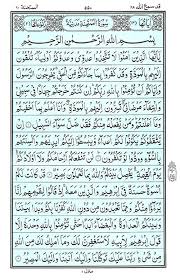 قد سمع الله ٢٨
الممتحنة ٦٠
سورة الممتحنة مدنية
بسم الله الرحمن الرحيم
يايها الذين امنوا لا تتخذوا عدوي وعدوكم اولياء تلقون
اليهم بالمودة وقد كفروا بما جاءكم من الحق يخرجون الرسول
واياكم ان تؤمنوا بالله ربكم ان كنتم خرجتم جهادا في سبيلي وابتغاء
مرضاتي تسرون اليهم بالمودة وانا اعلم بما اخفيتم وما اعلنتم
ومن يفعله منكم فقد ضل سواء السبيل ان يثقفوكم
يكونوا لكم اعداء ويبسطوا اليكم ايديهم والسنتهم بالسوء
وودوا لو تكفرون لن تنفعكم ارحامكم ولا اولادكم يوم القيمة
يفصل بينكم والله بما تعملون بصير قد كانت لكم
اسوة حسنة في ابرهيم والذين معه اذ قالوا لقومهم انا
برءؤا منكم ومما تعبدون من دون الله كفرنا بكم وبدا بيننا
وبينكم العداوة والبغضاء ابدا حتى تؤمنوا بالله وحده الا
قول ابرهيم لابيه لاستغفرن لك وما املك لك من الله
من شيء ربنا عليك توكلنا واليك انبنا واليك المصير